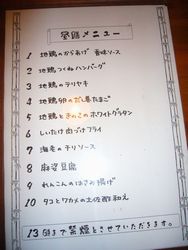 昼膳メニュー
1 地鶏のからあげ 香味ソース
2 地鶏つくねハンバーグ
3 地鶏のテリヤキ
4 地鶏卵のだし巻たまご
5 地鶏ときのこのホワイトグラタン
6 しいたけ肉づけフライ
7 海老のチリソース
8 麻婆豆腐
9 れんこんのはさみ揚げ
10 タコとワカメの土佐酢和え
13時まで禁煙とさせていただきます。